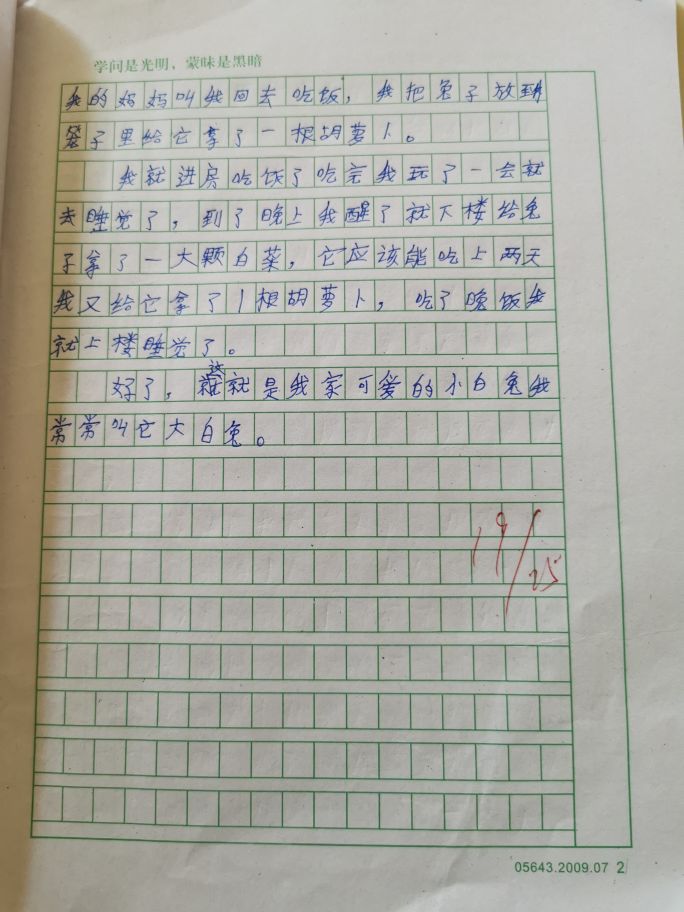 学问是光明、蒙昧是黑暗
我的妈妈叫我回去吃饭，我把兔子放到
笼子里给它拿了一根胡萝卜。
我就进房吃饭了吃完我玩了一会就
去睡觉了，到了晚上我醒了就下楼给兔
子拿了一大颗白菜，它应该能吃上两天
我又给它拿了1根胡萝卜，吃了晚饭我
就上楼睡觉了。
好了，这就是我家可爱的小白兔我
常常叫它大白兔。
19/25
05643.2009.07 2